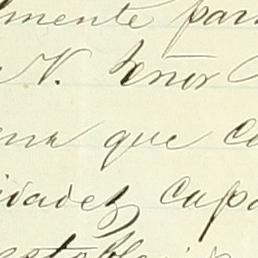 mente par
N. Señor
ena que c
idades capa
establ